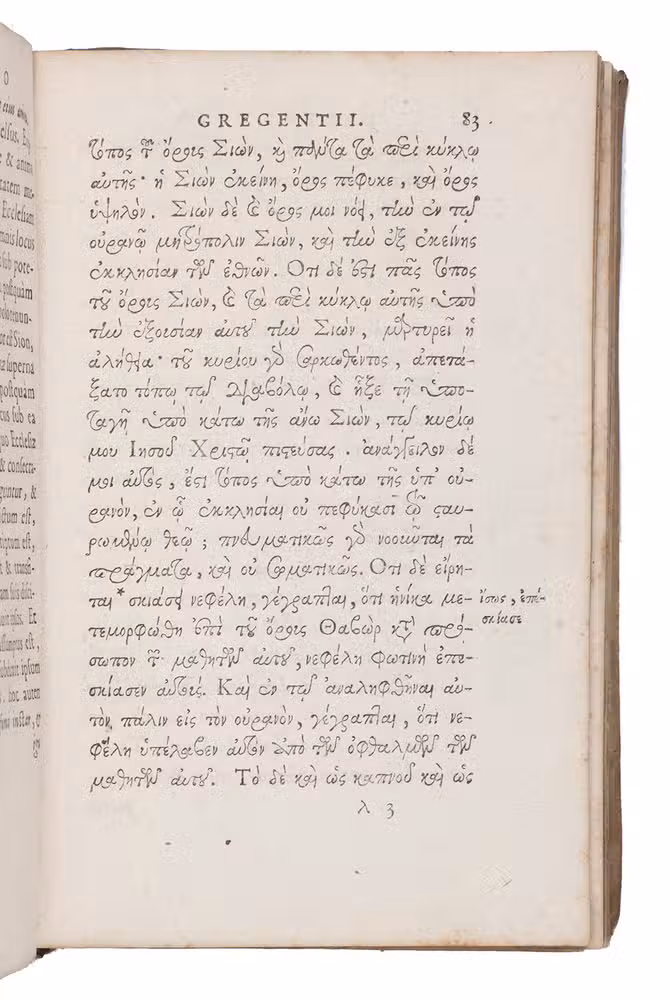 GREGENTII. 83
τόπος τοῦ ὄρους Σιὼν, καὶ πάντα τὰ περὶ κύκλῳ
αὐτῆς· ἡ Σιὼν ἐκείνη, ὄρος πέφυκε, καὶ ὄρος
ὑψηλόν. Σιὼν δὲ καὶ ὄρος μοι νόει, τὴν ἐν τῷ
οὐρανῷ μητρόπολιν Σιὼν, καὶ τὴν ἐξ ἐκείνης
ἐκκλησίαν τῶν ἐθνῶν. Οτι δὲ ἐστι πᾶς τόπος
τοῦ ὄρους Σιὼν, καὶ τὰ περὶ κύκλῳ αὐτῆς ὑπὸ
τὴν ἐξουσίαν αὐτοῦ τὴν Σιὼν, μαρτυρεῖ ἡ
ἀλήθεια· τοῦ κυρίου γὰρ σαρκωθέντος, ἀπετά-
ξατο τόπῳ τῷ Διαβόλῳ, καὶ ἧξε τῇ ὑπο-
ταγῇ ὑπὸ κάτω τῆς ἄνω Σιὼν, τῷ κυρίῳ
μου Ιησοῦ Χριστῷ πιστεύσας. ἀνάγγειλον δέ
μοι αὖθις, ἔστι τόπος ὑπὸ κάτω τῆς ὑπ' οὐ-
ρανὸν, ἐν ᾧ ἐκκλησίαι οὐ πεφύκασι τῷ σταυ-
ρωμένῳ θεῷ; πνευματικῶς γὰρ νοοῦνται τὰ
πράγματα, καὶ οὐ σωματικῶς. Οτι δὲ εἴρη-
ται * σκιάσει νεφέλη, γέγραπται, ὅτι ἡνίκα με-
ἴσως, ἐπε-
σκίασε
τεμορφώθη ἐπὶ τοῦ ὄρους Θαβὼρ κατὰ πρό-
σωπον τῶν μαθητῶν αὐτοῦ, νεφέλη φωτινὴ ἐπε-
σκίασεν αὐτοῖς. Καὶ ἐν τῷ ἀναληφθῆναι αὐ-
τὸν πάλιν εἰς τὸν οὐρανὸν, γέγραπται, ὅτι νε-
φέλη ὑπέλαβεν αὐτὸν ἀπὸ τῶν ὀφθαλμῶν τῶν
μαθητῶν αὐτοῦ. Τὸ δὲ καὶ ὡς καπνοῦ καὶ ὡς
λ 3